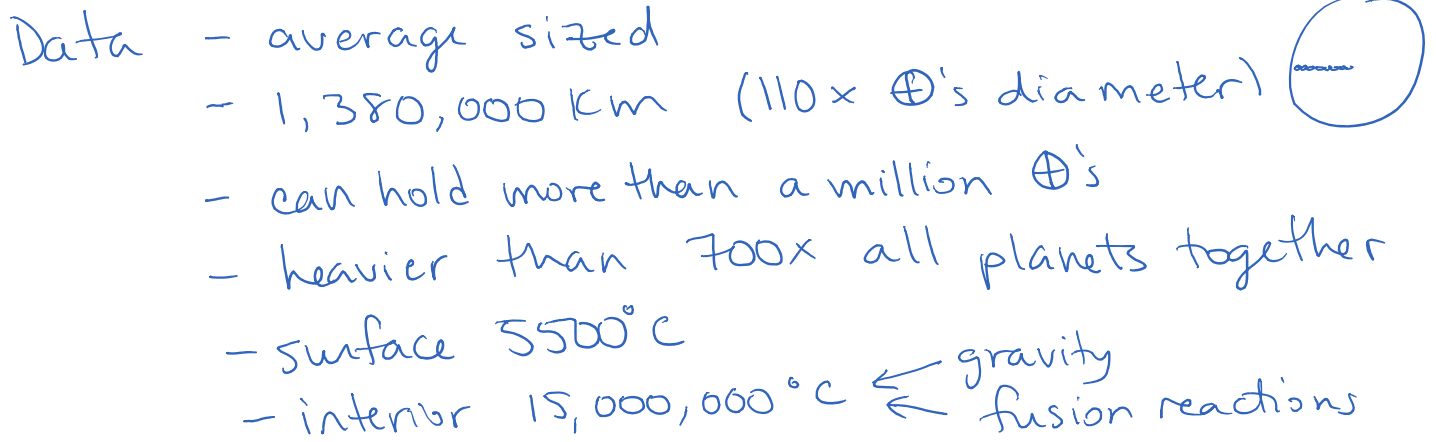 Data - average sized
- 1,380,000 Km (110x ⊕'s diameter)
- can hold more than a million ⊕'s
- heavier than 700x all planets together
- surface 5500°C
- interior 15,000,000°C ← gravity
← fusion reactions